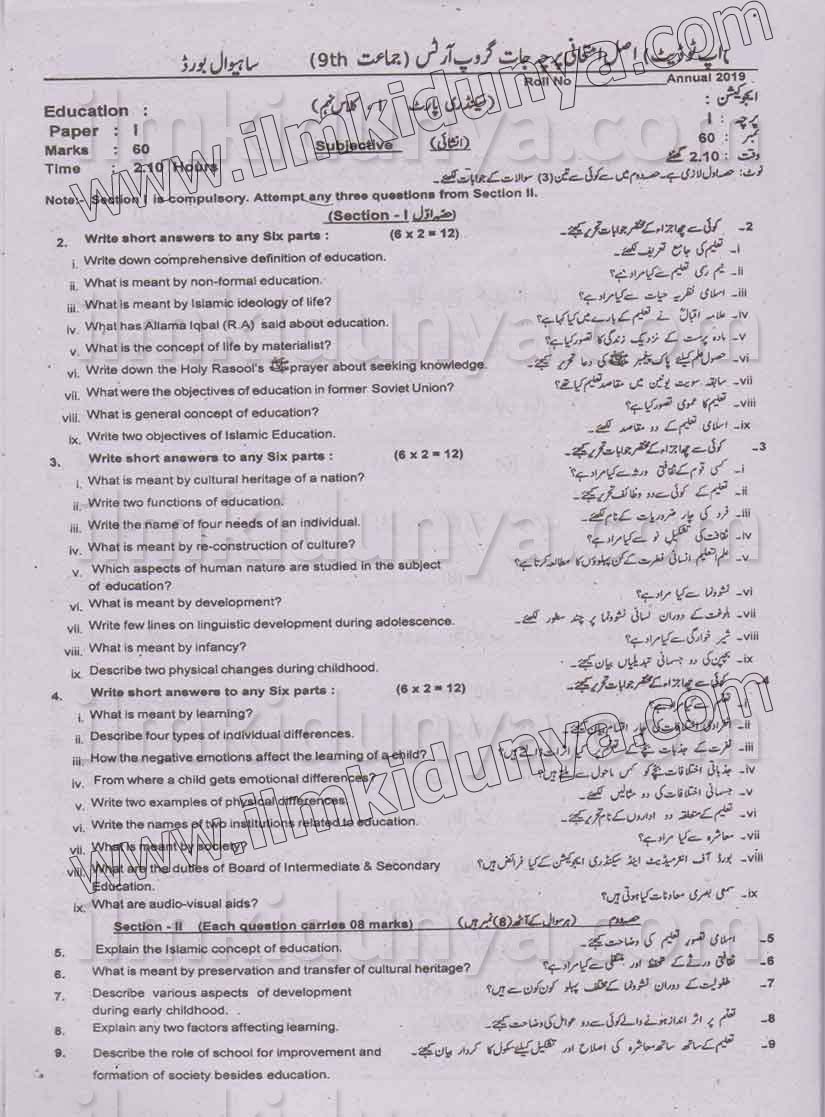 (اپ ٹو ڈیٹ) اصل امتحانی پرچہ جات گروپ آرٹس (جماعت 9th) ساہیوال بورڈ
Roll No Annual 2019
Education : (سیکنڈری پارٹ - I، کلاس نہم) ایجوکیشن :
Paper : I پرچہ : I
Marks : 60 Subjective (انشائی) نمبر : 60
Time : 2.10 Hours وقت : 2.10 گھنٹے
نوٹ: حصہ اول لازمی ہے۔ حصہ دوم میں سے کوئی سے تین (3) سوالات کے جوابات لکھئے۔
Note:- Section I is compulsory. Attempt any three questions from Section II.
(Section - I حصہ اوّل)
2. Write short answers to any Six parts : (6 x 2 = 12) 2۔ کوئی سے چھ اجزاء کے مختصر جوابات تحریر کیجئے۔
i. Write down comprehensive definition of education. i۔ تعلیم کی جامع تعریف لکھئے۔
ii. What is meant by non-formal education. ii۔ نیم رسمی تعلیم سے کیا مراد ہے؟
iii. What is meant by Islamic ideology of life? iii۔ اسلامی نظریہ حیات سے کیا مراد ہے؟
iv. What has Allama Iqbal (R.A) said about education. iv۔ علامہ اقبالؒ نے تعلیم کے بارے میں کیا کہا ہے؟
v. What is the concept of life by materialist? v۔ مادہ پرست کے نزدیک زندگی کا تصور کیا ہے؟
vi. Write down the Holy Rasool's ﷺ prayer about seeking knowledge. vi۔ حصول علم کیلئے پاک پیغمبر ﷺ کی دعا تحریر کیجئے۔
vii. What were the objectives of education in former Soviet Union? vii۔ سابقہ سویت یونین میں مقاصد تعلیم کیا تھے؟
viii. What is general concept of education? viii۔ تعلیم کا عمومی تصور کیا ہے؟
ix. Write two objectives of Islamic Education. ix۔ اسلامی تعلیم کے دو مقاصد لکھئے۔
3. Write short answers to any Six parts : (6 x 2 = 12) 3۔ کوئی سے چھ اجزاء کے مختصر جوابات تحریر کیجئے۔
i. What is meant by cultural heritage of a nation? i۔ کسی قوم کے ثقافتی ورثہ سے کیا مراد ہے؟
ii. Write two functions of education. ii۔ تعلیم کے کوئی سے دو وظائف تحریر کیجئے۔
iii. Write the name of four needs of an individual. iii۔ فرد کی چار ضروریات کے نام لکھئے۔
iv. What is meant by re-construction of culture? iv۔ ثقافت کی تشکیل نو سے کیا مراد ہے؟
v. Which aspects of human nature are studied in the subject v۔ علم التعلیم انسانی فطرت کے کن پہلوؤں کا مطالعہ کرتا ہے؟
of education?
vi. What is meant by development? vi۔ نشوونما سے کیا مراد ہے؟
vii. Write few lines on linguistic development during adolescence. vii۔ بلوغت کے دوران لسانی نشوونما پر چند سطور لکھئے۔
viii. What is meant by infancy? viii۔ شیر خوارگی سے کیا مراد ہے؟
ix. Describe two physical changes during childhood. ix۔ بچپن کی دو جسمانی تبدیلیاں بیان کیجئے۔
4. Write short answers to any Six parts : (6 x 2 = 12) 4۔ کوئی سے چھ اجزاء کے مختصر جوابات تحریر کیجئے۔
i. What is meant by learning? i۔ تعلم سے کیا مراد ہے؟
ii. Describe four types of individual differences. ii۔ انفرادی اختلافات کی چار اقسام بیان کیجئے۔
iii. How the negative emotions affect the learning of a child? iii۔ نفرت کے جذبات بچے کے تعلم پر کیا اثرات ڈالتے ہیں؟
iv. From where a child gets emotional differences? iv۔ جذباتی اختلافات بچے کو کس ماحول سے ملتے ہیں؟
v. Write two examples of physical differences. v۔ جسمانی اختلافات کی دو مثالیں لکھئے۔
vi. Write the names of two institutions related to education. vi۔ تعلیم کے متعلقہ دو اداروں کے نام تحریر کیجئے۔
vii. What is meant by society? vii۔ معاشرہ سے کیا مراد ہے؟
viii. What are the duties of Board of Intermediate & Secondary viii۔ بورڈ آف انٹرمیڈیٹ اینڈ سیکنڈری ایجوکیشن کے کیا فرائض ہیں؟
Education.
ix. What are audio-visual aids? ix۔ سمعی بصری معاونات کیا ہوتی ہیں؟
Section - II (Each question carries 08 marks) (ہر سوال کے آٹھ (8) نمبر ہیں) حصہ دوم
5. Explain the Islamic concept of education. 5۔ اسلامی تصور تعلیم کی وضاحت کیجئے۔
6. What is meant by preservation and transfer of cultural heritage? 6۔ ثقافتی ورثے کے تحفظ اور منتقلی سے کیا مراد ہے؟
7. Describe various aspects of development 7۔ طفولیت کے دوران نشوونما کے مختلف پہلو کون کون سے ہیں؟
during early childhood.
8. Explain any two factors affecting learning. 8۔ تعلم پر اثر انداز ہونے والے کوئی سے دو عوامل کی وضاحت کیجئے۔
9. Describe the role of school for improvement and 9۔ تعلیم کے ساتھ ساتھ معاشرہ کی اصلاح اور تشکیل کیلئے سکول کا کردار بیان کیجئے۔
formation of society besides education.
www.ilmkidunya.com
www.ilmkidunya.com
ilmkidunya.com
ilmkidunya.com
ilmkidunya.com
ilmkidunya.com
ilmkidunya.com
ilmkidunya.com